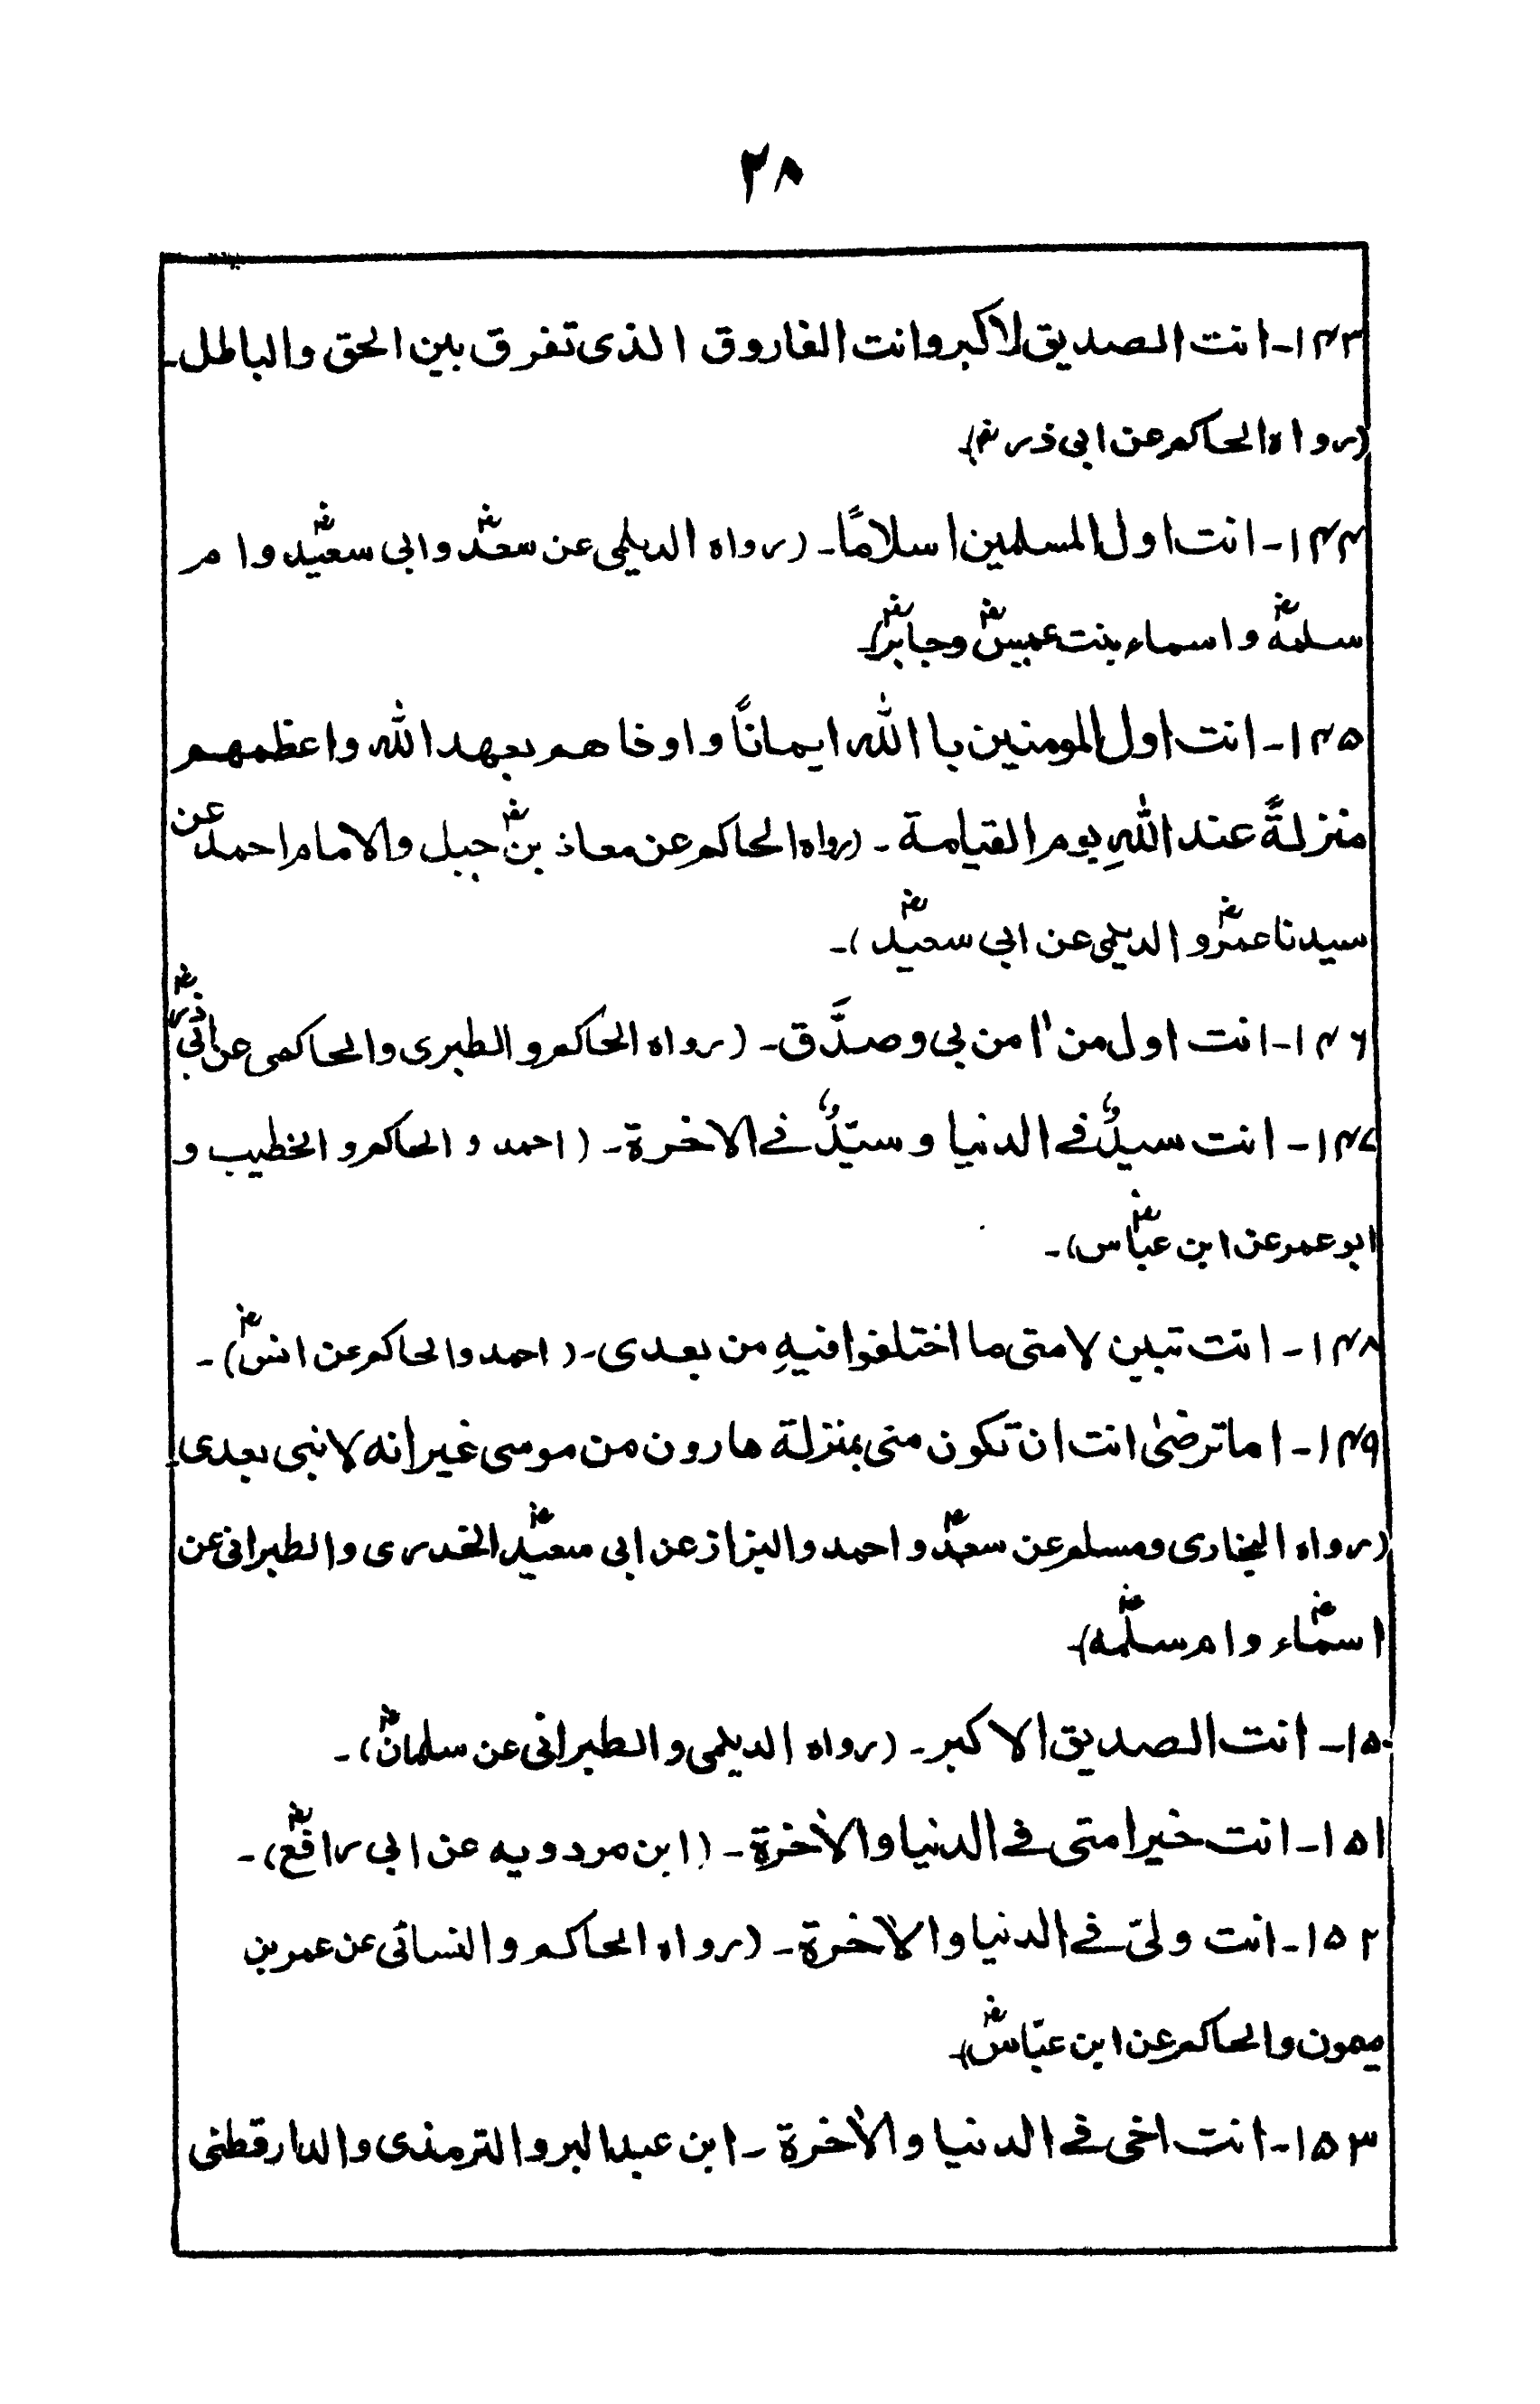 ۲۸
۱۴۳۔ انت الصدیق لاکبر وانت الفاروق الذی تفرق بین الحق والباطل۔
(رواہ الحاکم عن ابی ذرؓ)۔
۱۴۴۔ انت اول المسلمین اسلامًا۔ (رواہ الدیلمی عن سعدؓ وابی سعیدؓ وام
سلمہؓ واسماء بنت عمیسؓ وجابرؓ)۔
۱۴۵۔ انت اول المومنین باالله ایمانًا واوفاھم بعھد الله واعظمھم
منزلةً عند اللهِ یوم القیامة۔ (رواہ الحاکم عن معاذ بنؓ جبل والامام احمد عن
سیدنا عمرؓ والدیلمی عن ابی سعیدؓ)۔
۱۴۶۔ انت اول من اٰمن بی وصدَّق۔ (رواہ الحاکم والطبری والحاکمی عن ابی ذرؓ
۱۴۷۔ انت سیدٌ فے الدنیا وسیّدٌ فے الاخرة۔ (احمد والحاکم والخطیب و
ابوعمر عن ابن عباسؓ)۔
۱۴۸۔ انت تبین لامتی ما اختلفوا فیهِ من بعدی۔ (احمد والحاکم عن انسؓ)۔
۱۴۹۔ اما ترضیٰ انت ان تکون منی بمنزلة ھارون من موسی غیر انه لانبی بعدی۔
(رواہ البخاری ومسلم عن سعدؓ واحمد والبزاز عن ابی سعیدؓ الخدری والطبرانی عن
اسماءؓ وام سلمہؓ)۔
۱۵۰۔ انت الصدیق الاکبر۔ (رواہ الدیلمی والطبرانی عن سلمانؓ)۔
۱۵۱۔ انت خیر امتی فے الدنیا والاٰخرة۔ (ابن مردویه عن ابی رافعؓ)۔
۱۵۲۔ انت ولیّ فے الدنیا والاٰخرة۔ (رواہ الحاکم والنسائی عن عمر بن
میمون والحاکم عن ابن عبّاسؓ)۔
۱۵۳۔ انت اخی فے الدنیا والاٰخرة۔ ابن عبدالبر والترمذی والدارقطنی